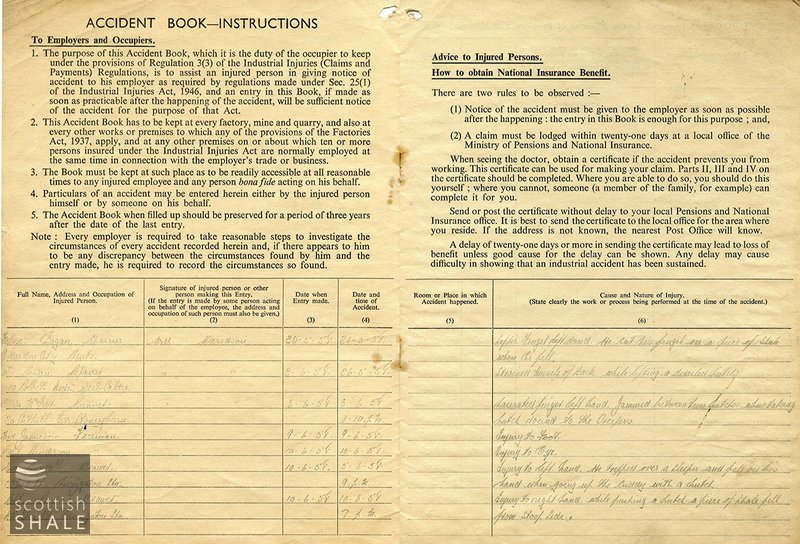 ACCIDENT BOOK—INSTRUCTIONS
To Employers and Occupiers.
1. The purpose of this Accident Book, which it is the duty of the occupier to keep
under the provisions of Regulation 3(3) of the Industrial Injuries (Claims and
Payments) Regulations, is to assist an injured person in giving notice of
accident to his employer as required by regulations made under Sec. 25(1)
of the Industrial Injuries Act, 1946, and an entry in this Book, if made as
soon as practicable after the happening of the accident, will be sufficient notice
of the accident for the purpose of that Act.
2. This Accident Book has to be kept at every factory, mine and quarry, and also at
every other works or premises to which any of the provisions of the Factories
Act, 1937, apply, and at any other premises on or about which ten or more
persons insured under the Industrial Injuries Act are normally employed at
the same time in connection with the employer's trade or business.
3. The Book must be kept at such place as to be readily accessible at all reasonable
times to any injured employee and any person bona fide acting on his behalf.
4. Particulars of an accident may be entered herein either by the injured person
himself or by someone on his behalf.
5. The Accident Book when filled up should be preserved for a period of three years
after the date of the last entry.
Note : Every employer is required to take reasonable steps to investigate the
circumstances of every accident recorded herein and, if there appears to him
to be any discrepancy between the circumstances found by him and the
entry made, he is required to record the circumstances so found.
Advice to Injured Persons.
How to obtain National Insurance Benefit.
There are two rules to be observed :—
(1) Notice of the accident must be given to the employer as soon as possible
after the happening : the entry in this Book is enough for this purpose ; and,
(2) A claim must be lodged within twenty-one days at a local office of the
Ministry of Pensions and National Insurance.
When seeing the doctor, obtain a certificate if the accident prevents you from
working. This certificate can be used for making your claim. Parts II, III and IV on
the certificate should be completed. Where you are able to do so, you should do this
yourself ; where you cannot, someone (a member of the family, for example) can
complete it for you.
Send or post the certificate without delay to your local Pensions and National
Insurance office. It is best to send the certificate to the local office for the area where
you reside. If the address is not known, the nearest Post Office will know.
A delay of twenty-one days or more in sending the certificate may lead to loss of
benefit unless good cause for the delay can be shown. Any delay may cause
difficulty in showing that an industrial accident has been sustained.
Full Name, Address and Occupation of
Injured Person.
(1)
Signature of injured person or other
person making this Entry.
(If the entry is made by some person acting
on behalf of the employee, the address and
occupation of such person must also be given.)
(2)
Date when
Entry made.
(3)
Date and
time of
Accident.
(4)
Room or Place in which
Accident happened.
(5)
Cause and Nature of Injury.
(State clearly the work or process being performed at the time of the accident.)
(6)
Logan Davidson 26-5-58 Septic finger left hand. He cut his finger on a piece of shale
where he fell.
Drawer Strained muscle of back while lifting a derailed hutch
finger left hand. Jammed between two hutches when taking
hutch round to the
Jamieson Fireman 9-6-58 9-6-58 Injury to Foot
10-6-58 10-6-58 Injury to Eye.
Drawer 10-6-58 5-6-58 Injury to left hand. He tripped over a sleeper and fell on his
Livingston 9 p.m. hand when going up the with a hutch
Drawer 10-6-58 10-6-58 Injury to right hand, while pushing a hutch a piece of shale fell
7 p.m. from side.
scottish
SHALE